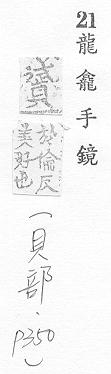 21 龍龕手鏡
贇
於倫反
美好也
（貝部．P350）